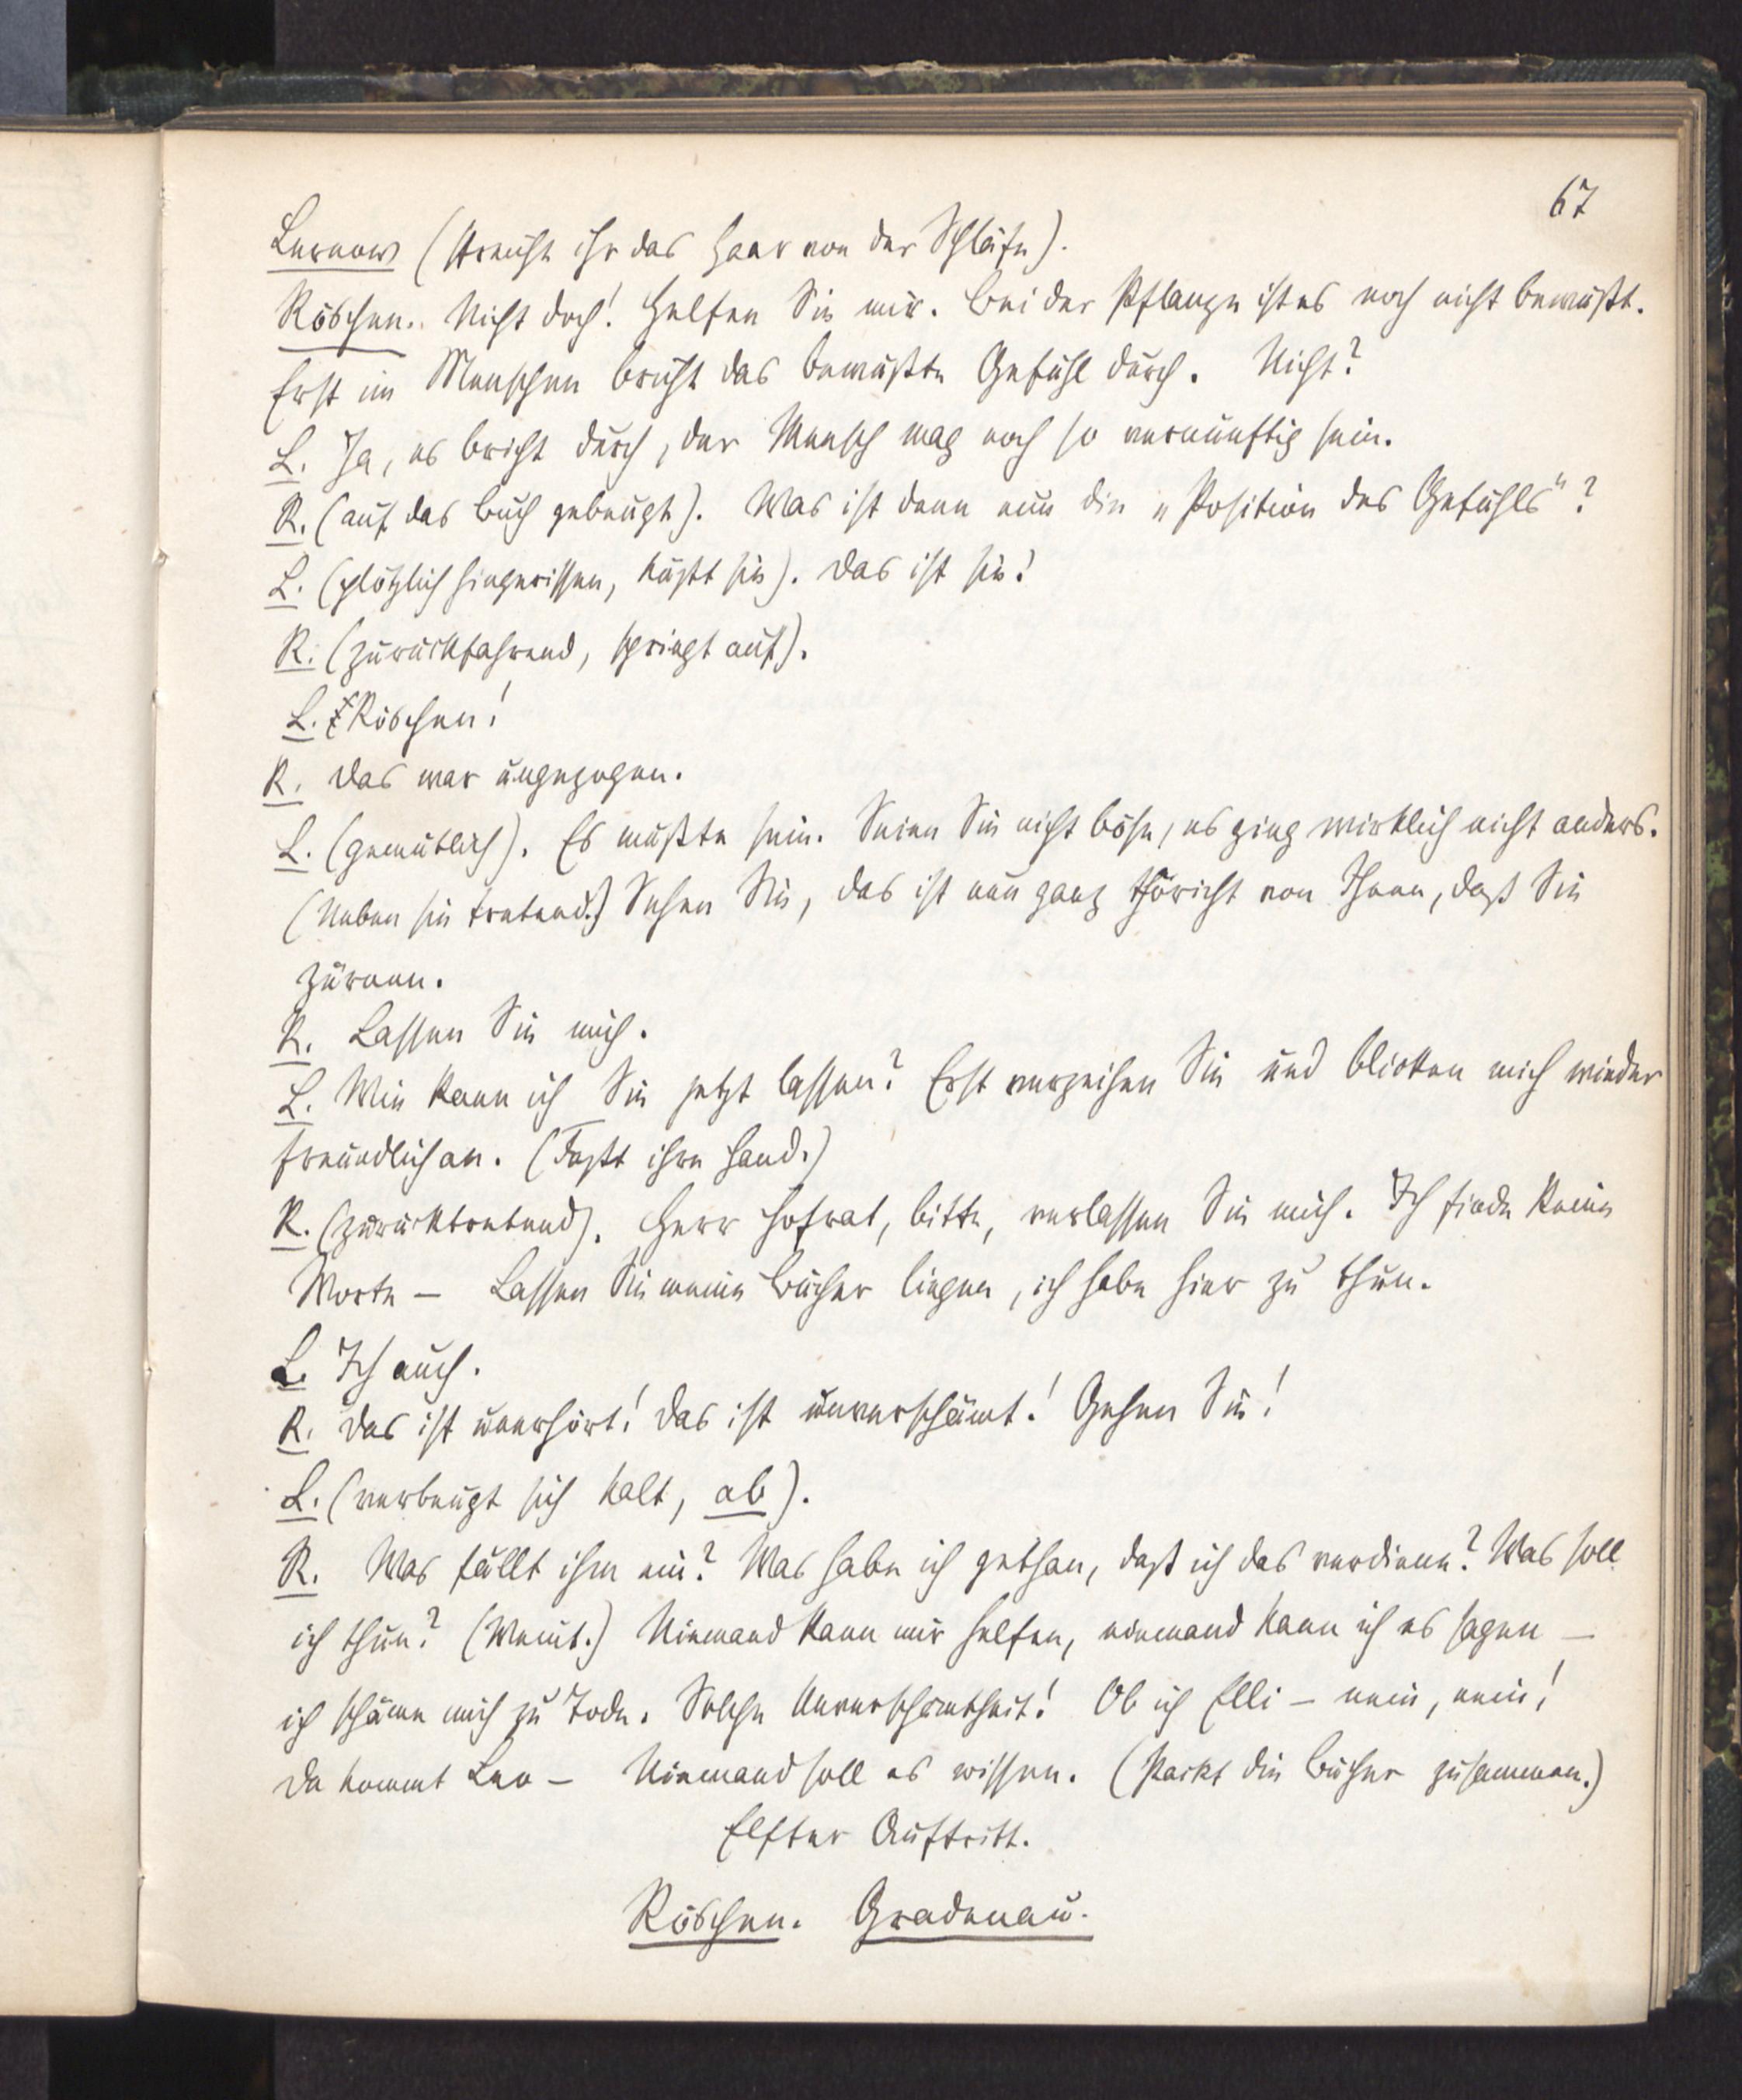 67
Lernow (streicht ihr das Haar von der Schläfe).
Röschen. Nicht doch! Helfen Sie mir. Bei der Pflanze ist es noch nicht bewußt.
Erst im Menschen bricht das bewußte Gefühl durch. Nicht?
L. Ja, es bricht durch, der Mensch mag noch so vernünftig sein.
R. (auf das Buch gebeugt). Was ist denn nun die „Position des Gefühls“?
L. (plötzlich hingerissen, küßt sie). Das ist sie!
R. (zurückfahrend, springt auf).
L. Röschen!
R. Das war ungezogen.
L. (gemütlich). Es mußte sein. Seien Sie nicht böse, es ging wirklich nicht anders.
(Neben sie tretend.) Sehen Sie, das ist nun ganz thöricht von Ihnen, daß Sie
zürnen.
R. Lassen Sie mich.
L. Wie kann ich Sie jetzt lassen? Erst verzeihen Sie und blicken mich wieder
freundlich an. (Faßt ihre Hand.)
R. (zurücktretend). Herr Hofrat, bitte, verlassen Sie mich. Ich finde keine
Worte — Lassen Sie meine Bücher liegen, ich habe hier zu thun.
L. Ich auch.
R. Das ist unerhört! Das ist unverschämt! Gehen Sie!
L. (verbeugt sich kalt, ab).
R. Was fällt ihm ein? Was habe ich gethan, daß ich das verdiene? Was soll
ich thun? (Weint.) Niemand kann mir helfen, niemand kann ich es sagen —
ich schäme mich zu Tode. Solche Unverschämtheit! Ob ich Elli — nein, nein!
Da kommt Leo — Niemand soll es wissen. (Packt die Bücher zusammen.)
Elfter Auftritt.
Röschen. Gradenau.